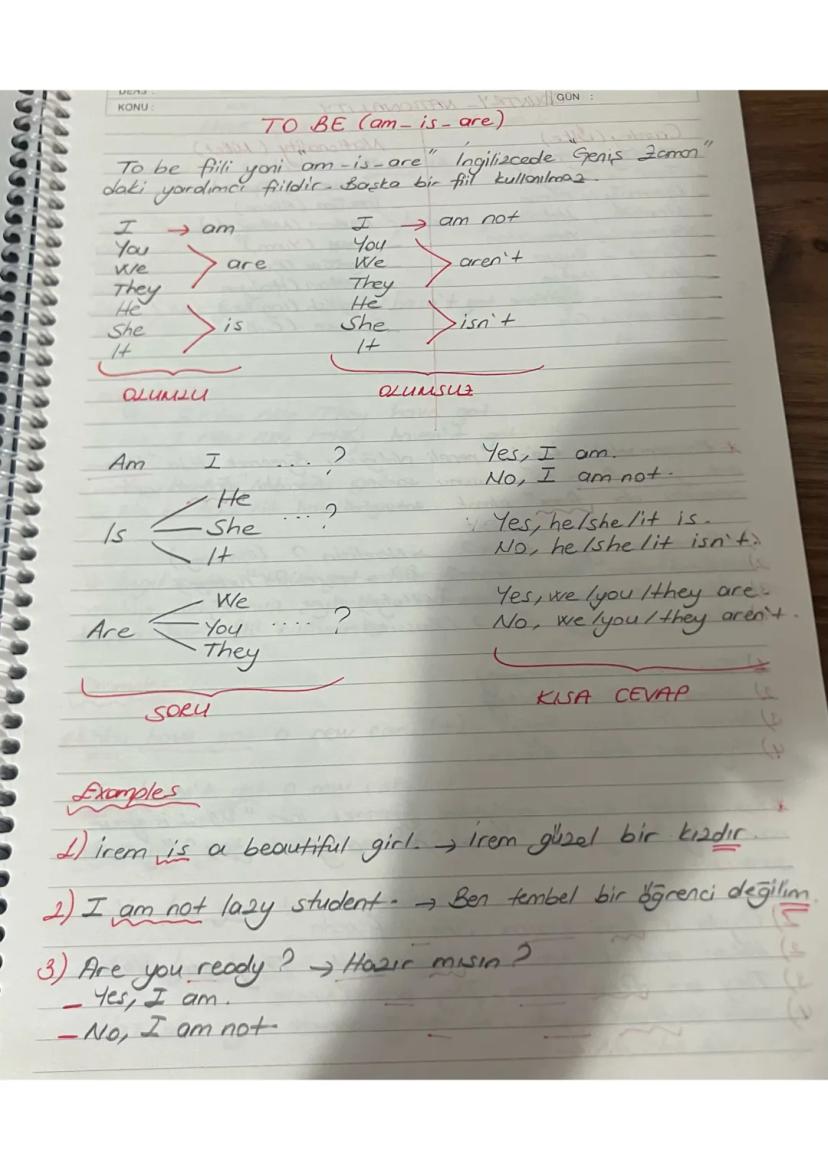 KONU :
GÜN :
TO BE (am - is - are)
To be fiili yani am - is - are" İngilizcede "Geniş Zaman"
daki yardımcı fiildir. Başka bir fiil kullanılmaz.
I → am
You
We
They
are
He
She
It
is
OLUMLU
I → am not
You
We
They
aren't
He
She
It
isn't
OLUMSUZ
Am I ....?
Is He She It ....?
Are We You They ....?
SORU
Yes, I am.
No, I am not.
Yes, he/she/it is.
No, he/she/it isn't.
Yes, we/you/they are.
No, we/you/they aren't.
KISA CEVAP
Examples
1) irem is a beautiful girl. → İrem güzel bir kızdır.
2) I am not lazy student. → Ben tembel bir öğrenci değilim.
3) Are you ready? → Hazır mısın?
- Yes, I am.
- No, I am not.